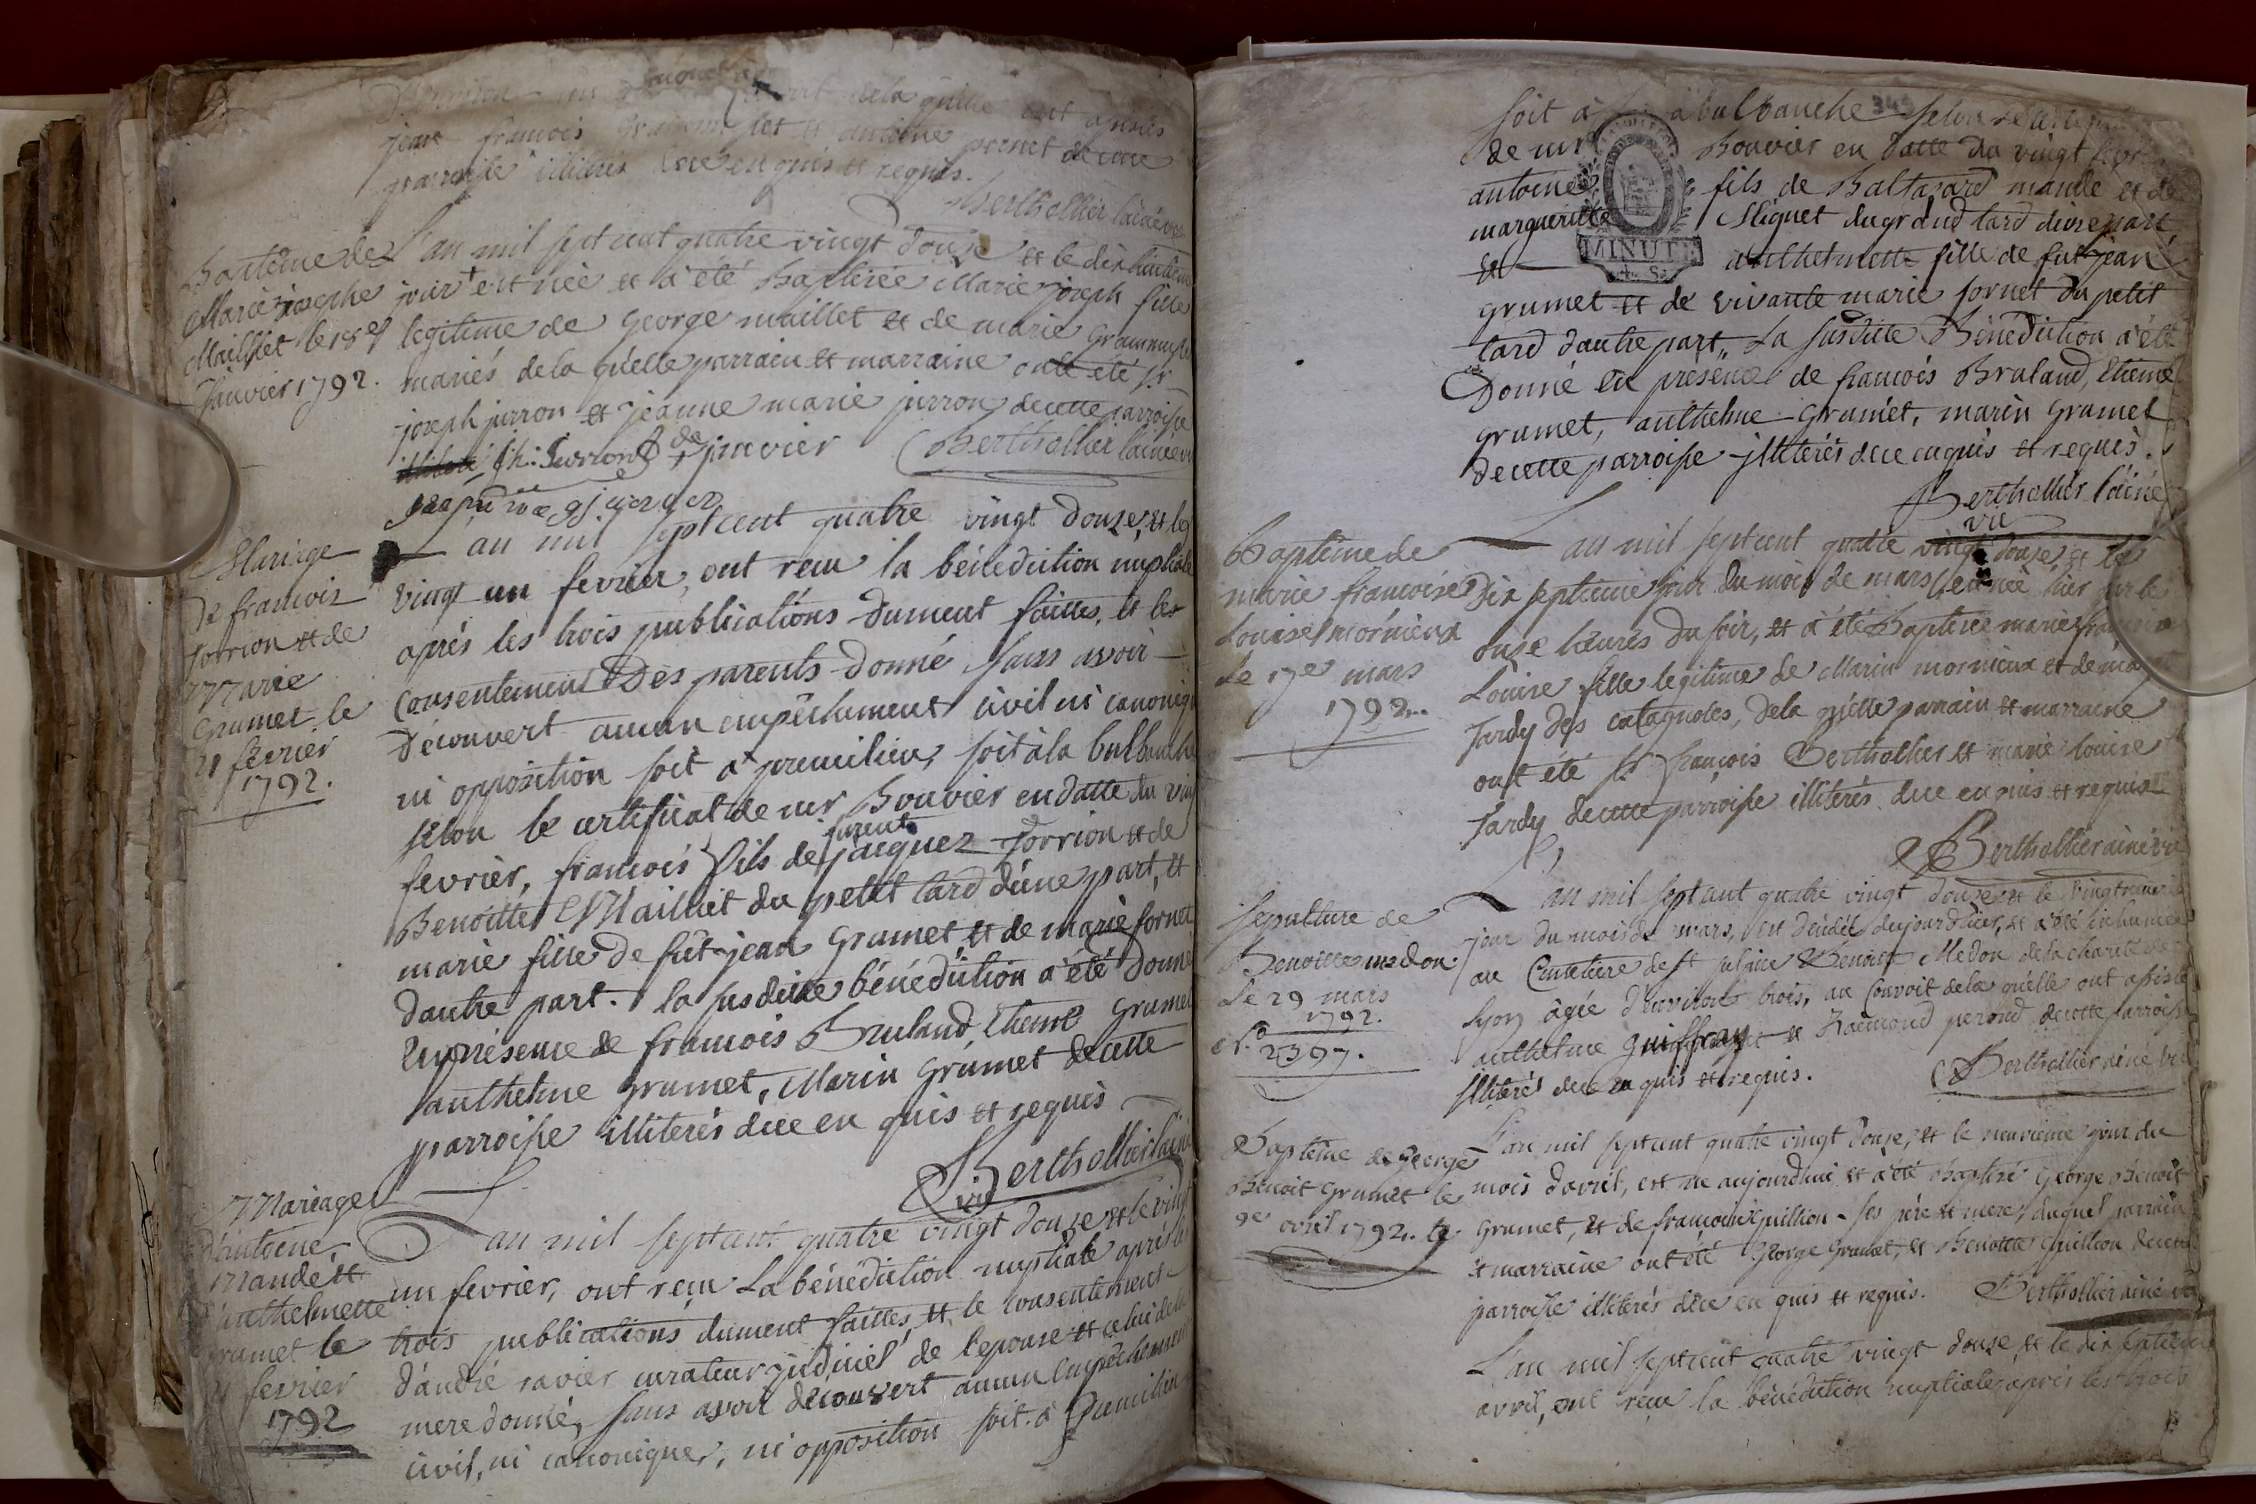 jean francois et antoine pernet de cette
parroisse illiterés de ce enquis et requis.
Berthollier l'ainé vic
Baptême de
Marie josephe
Mailliet le 18e
Janvier 1792.
L'an mil sept cent quatre vingt douze et le dix huitieme
jour + est née et à été Baptisée Marie joseph fille
legitime de George maillet et de marie Grammusset
mariés de la quelle parrain et marraine ont été sr
joseph jurron et jeanne marie jurron de cette parroisse
fh: Jurron de janvier Berthollier l'ainé vic
Mariage
de francois
Jorrion et de
Marie
Grumet le
21 fevrier
1792.
L'an mil sept cent quatre vingt douze, et le
vingt un fevrier, ont recu la bénédiction nuptiale
aprés les trois publications dument faittes, et les
Consentement Des parents donné sans avoir
découvert aucun empêchement civil ni canonique
ni opposition soit à premilieu, soit à la balbanche
selon le certificat de mr Bouvier en datte du vingt
fevrier, francois fils de jacquez Jorrion et de
Benoitte Mailliet du petit lard d'une part, et
marie fille de fût jean Grumet et de marie fornet
d'autre part. la susditte bénédiction a été Donné
En présence de francois Bruland, Etienne Grumet
anthelme Grumet, Marin Grumet de cette
parroisse illiterés de ce en quis et requis
Berthollier l'ainé
vic
Mariage
d'antoine
Mande et
d'anthelmette
Grumet le
21 fevrier
1792
L'an mil sept cent quatre vingt douze et le vingt
un fevrier, ont reçu La bénédiction nuptiale aprés les
trois publications dument faittes, et le consentement
d'andré ravier curateur judiciel de l'epouse et celui de la
mere donné, sans avoir découvert aucun Empêchement
civil, ni canonique, ni opposition soit à Premillieu
soit à la balbanche selon le certificat
de mr Bouvier en datte du vingt fevrier
antoine fils de Baltazard mande et de
margueritte Miguet du grand lard d'une part
et anthelmette fille de fut jean
MINUTE
grumet et de vivante marie fornet du petit
lard d'autre part, La susditte Bénédiction a été
Donné en presence de francois Bruland, Etienne
grumet, anthelme Grumet, marin Grumet
de cette parroisse illitérés de ce enquis et requis.
Berthollier l'ainé
vic
Baptême de
marie francoise
Louise mornieux
le 17e mars
1792.
L'an mil sept cent quatre vingt douze, et le
Dix septieme jour du mois de mars, est née hier sur les
onze heures du soir, et à été Baptisée marie francoise
Louise fille legitime de Marin mornieux et de marie
Jardy des catagnoles, de la quelle parrain et marraine
ont été sr francois Berthollier et marie louise
Jardy de cette parroisse illiterés de ce enquis et requis
Berthollier ainé vic
sepulture de
Benoitte medon
le 29 mars
1792.
2397.
L'an mil sept cent quatre vingt douze et le vingt neuvieme
jour du mois de mars, est décédée aujourd'hier, et a été inhumée
au Cimetiere de st sulpice Benoitte Medon de la charité de
Lyon âgée d'environ trois, au Convoit de la quelle ont assisté
anthelme Guiffray et Raimond perond de cette parroisse
illiterés de ce en quis et requis.
Berthollier ainé vic
Baptême de George
Benoit Grumet le
9e avril 1792.
L'an mil sept cent quatre vingt douze, et le neuvieme jour du
mois d'avril, est né aujourdhui, et a été Baptisé George Benoit
Grumet, et de francoise Quillion ses père et mere, duquel parrain
et marraine ont été George Grumet, et Benoitte Quillion de cette
parroisse illiterés de ce en quis et requis. Berthollier ainé vic
L'an mil sept cent quatre vingt douze, et le dix septieme
avril, ont reçu la bénédiction nuptiale, aprés les trois